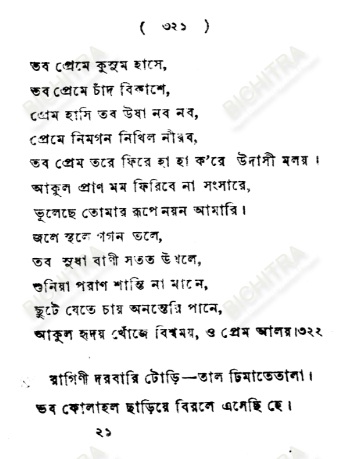 ( ৩২১ )
তব প্রেমে কুসুম হাসে,
তব প্রেমে চাঁদ বিকাশে,
প্রেম হাসি তব উষা নব নব,
প্রেমে নিমগন নিখিল নীরব,
তব প্রেম তরে ফিরে হা হা ক'রে উদাসী মলয়।
আকুল প্রাণ মম ফিরিবে না সংসারে,
ভুলেছে তোমার রূপে নয়ন আমারি।
জলে স্থলে গগন তলে,
তব সুধা বাণী সতত উথলে,
শুনিয়া পরাণ শান্তি না মানে,
ছুটে যেতে চায় অনন্তেরি পানে,
আকুল হৃদয় খোঁজে বিশ্বময়, ও প্রেম আলয়।৩২২
রাগিণী দরবারি টোড়ি—তাল ঢিমাতেতালা।
ভব কোলাহল ছাড়িয়ে বিরলে এসেছি হে।
২১
BICHITRA
BICHITRA
BICHITRA
BICHITRA